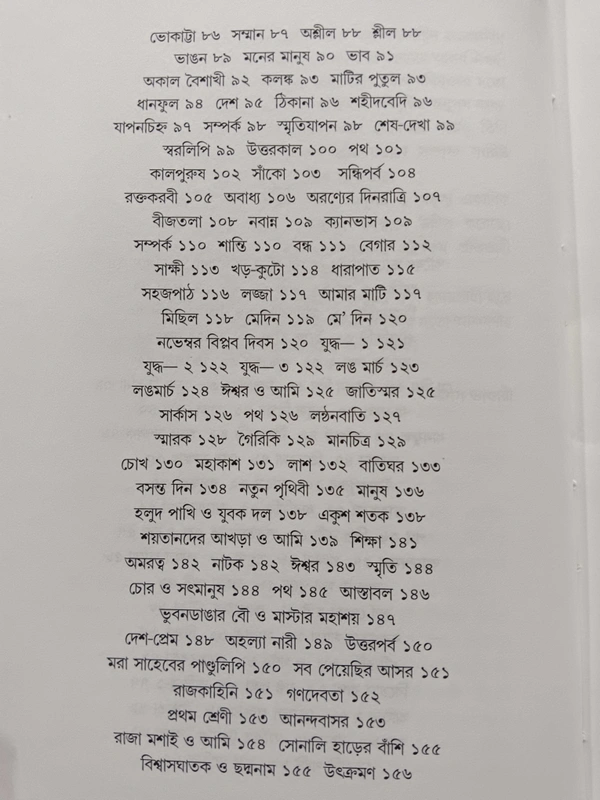 ভোকাট্টা ৮৬ সম্মান ৮৭ অশ্লীল ৮৮ শ্লীল ৮৮
ভাঙন ৮৯ মনের মানুষ ৯০ ভাব ৯১
অকাল বৈশাখী ৯২ কলঙ্ক ৯৩ মাটির পুতুল ৯৩
ধানফুল ৯৪ দেশ ৯৫ ঠিকানা ৯৬ শহীদবেদি ৯৬
যাপনচিহ্ন ৯৭ সম্পর্ক ৯৮ স্মৃতিযাপন ৯৮ শেষ-দেখা ৯৯
স্বরলিপি ৯৯ উত্তরকাল ১০০ পথ ১০১
কালপুরুষ ১০২ সাঁকো ১০৩ সন্ধিপর্ব ১০৪
রক্তকরবী ১০৫ অবাধ্য ১০৬ অরণ্যের দিনরাত্রি ১০৭
বীজতলা ১০৮ নবান্ন ১০৯ ক্যানভাস ১০৯
সম্পর্ক ১১০ শান্তি ১১০ বন্ধ ১১১ বেগার ১১২
সাক্ষী ১১৩ খড়-কুটো ১১৪ ধারাপাত ১১৫
সহজপাঠ ১১৬ লজ্জা ১১৭ আমার মাটি ১১৭
মিছিল ১১৮ মেদিন ১১৯ মে’ দিন ১২০
নভেম্বর বিপ্লব দিবস ১২০ যুদ্ধ— ১ ১২১
যুদ্ধ— ২ ১২২ যুদ্ধ— ৩ ১২২ লঙ মার্চ ১২৩
লঙমার্চ ১২৪ ঈশ্বর ও আমি ১২৫ জাতিস্মর ১২৫
সার্কাস ১২৬ পথ ১২৬ লণ্ঠনবাতি ১২৭
স্মারক ১২৮ গৈরিকি ১২৯ মানচিত্র ১২৯
চোখ ১৩০ মহাকাশ ১৩১ লাশ ১৩২ বাতিঘর ১৩৩
বসন্ত দিন ১৩৪ নতুন পৃথিবী ১৩৫ মানুষ ১৩৬
হলুদ পাখি ও যুবক দল ১৩৮ একুশ শতক ১৩৮
শয়তানদের আখড়া ও আমি ১৩৯ শিক্ষা ১৪১
অমরত্ব ১৪২ নাটক ১৪২ ঈশ্বর ১৪৩ স্মৃতি ১৪৪
চোর ও সৎমানুষ ১৪৪ পথ ১৪৫ আস্তাবল ১৪৬
ভুবনডাঙার বৌ ও মাস্টার মহাশয় ১৪৭
দেশ-প্রেম ১৪৮ অহল্যা নারী ১৪৯ উত্তরপর্ব ১৫০
মরা সাহেবের পাণ্ডুলিপি ১৫০ সব পেয়েছির আসর ১৫১
রাজকাহিনি ১৫১ গণদেবতা ১৫২
প্রথম শ্রেণী ১৫৩ আনন্দবাসর ১৫৩
রাজা মশাই ও আমি ১৫৪ সোনালি হাড়ের বাঁশি ১৫৫
বিশ্বাসঘাতক ও ছদ্মনাম ১৫৫ উৎক্রমণ ১৫৬